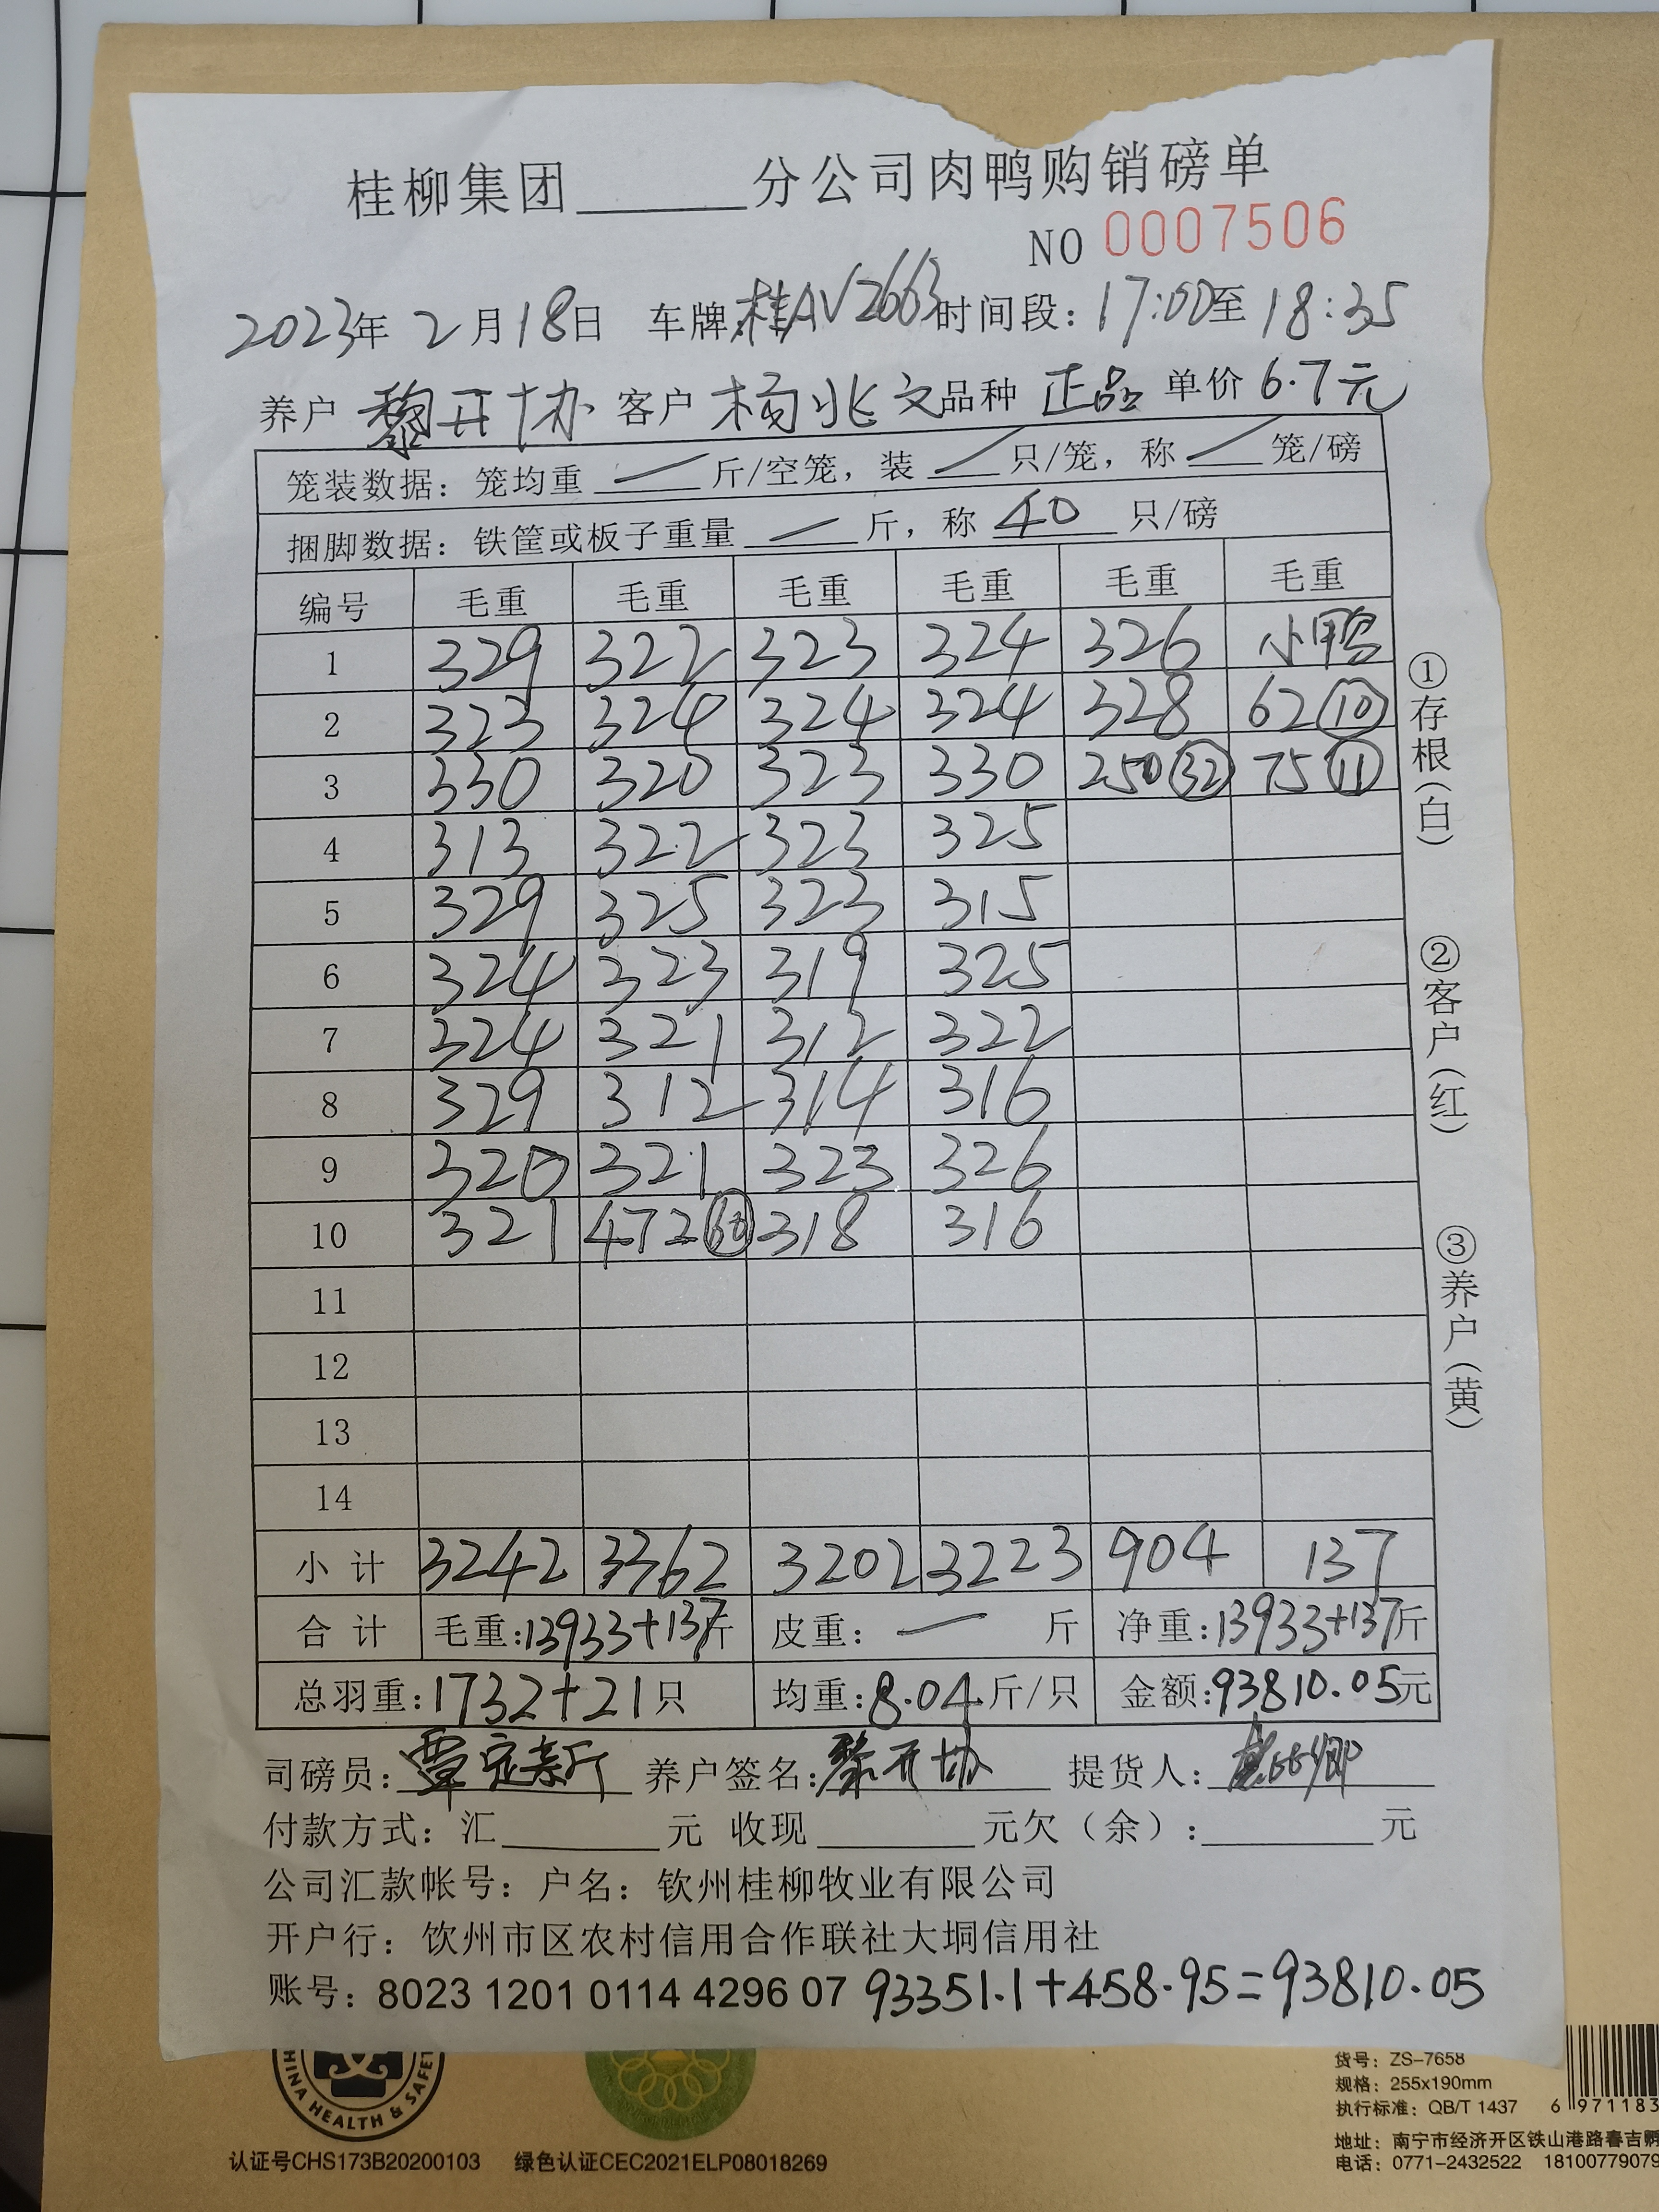 桂柳集团______分公司肉鸭购销磅单
NO 0007506
2023年 2月18日 车牌:桂AV2663 时间段：17:00至 18:35
养户 黎开协 客户 杨兆文 品种 正品 单价 6.7元
笼装数据：笼均重 — 斤/空笼，装 — 只/笼，称 — 笼/磅
捆脚数据：铁筐或板子重量 — 斤，称 40 只/磅
编号 毛重 毛重 毛重 毛重 毛重 毛重
1 329 322 323 324 326 小鸭
2 323 324 324 324 328 62 ⑩
3 330 320 323 330 250 ㉜ 75 ⑪
4 313 322 323 325
5 329 325 323 315
6 324 323 319 325
7 324 321 312 322
8 329 312 314 316
9 320 321 323 326
10 321 472 (60) 318 316
11
12
13
14
小计 3242 3362 3202 3223 904 137
合计 毛重:13933+137斤 皮重： — 斤 净重:13933+137斤
总羽重:1732+21只 均重:8.04斤/只 金额:93810.05元
司磅员: 覃定新 养户签名:黎开协 提货人:
付款方式：汇______元 收现______元欠（余）:______元
公司汇款帐号：户名：钦州桂柳牧业有限公司
开户行：钦州市区农村信用合作联社大垌信用社
账号：8023 1201 0114 4296 07 93351.1+458.95=93810.05
①存根(白)
②客户(红)
③养户(黄)
HINA HEALTH & SAFET
认证号CHS173B20200103 绿色认证CEC2021ELP08018269
货号：ZS-7658
规格：255x190mm
执行标准：QB/T 1437
6 971183
地址：南宁市经济开区铁山港路春吉孵
电话：0771-2432522 18100779079